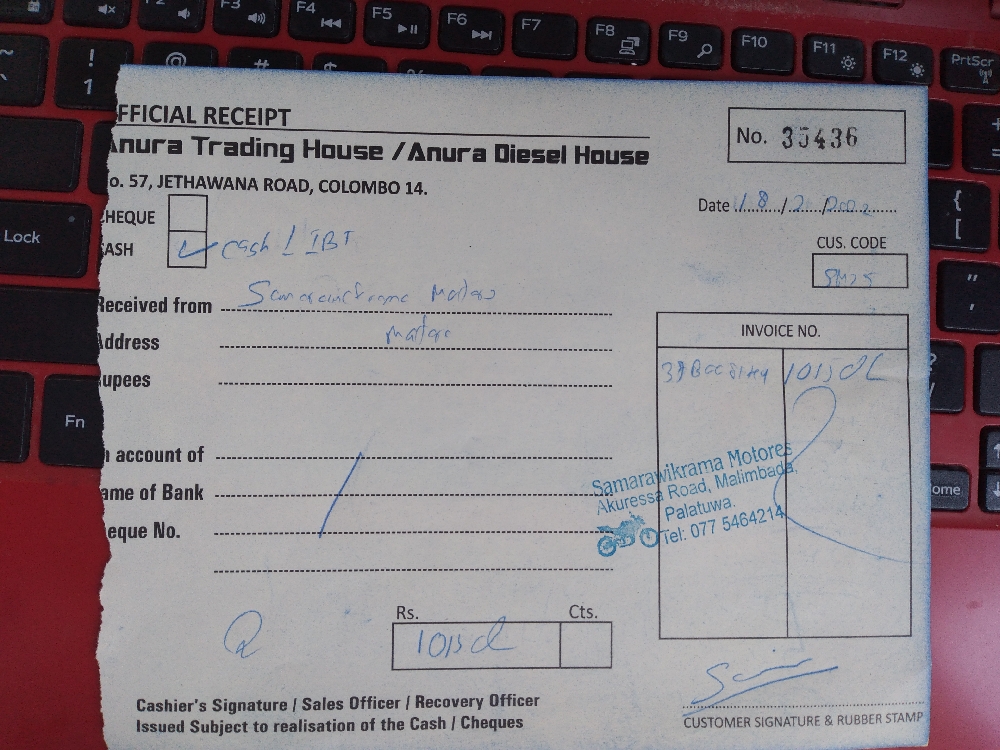 FFICIAL RECEIPT
Anura Trading House / Anura Diesel House
o. 57, JETHAWANA ROAD, COLOMBO 14.
No. 35436
Date 18/2/2002
CHEQUE
ASH cash / IBT
CUS. CODE
SM25
Received from
Address
upees
account of
ame of Bank
eque No.
INVOICE NO.
Samarawikrama Motores
Akuressa Road, Malimbada,
Palatuwa.
Tel: 077 5464214
Rs. Cts.
Cashier's Signature / Sales Officer / Recovery Officer
Issued Subject to realisation of the Cash / Cheques
CUSTOMER SIGNATURE & RUBBER STAMP
F4
F5
F6
F7
F8
F9
F10
F11
F12
PrtScr
Lock
Fn